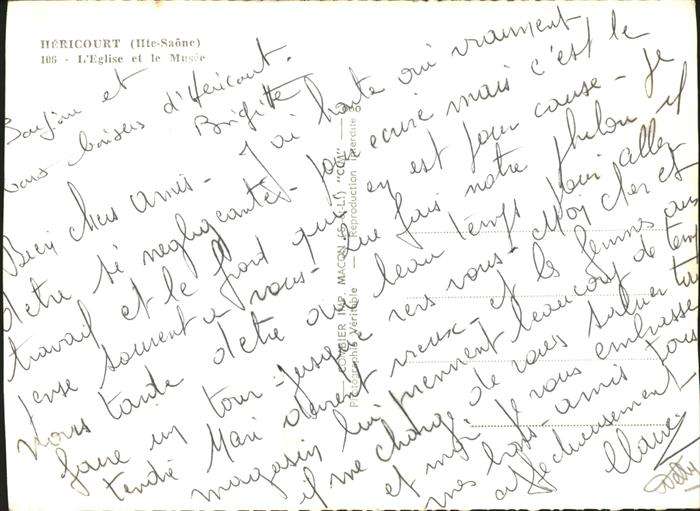 HÉRICOURT (Hte-Saône)
106 - L'Eglise et le Musée
et
bons baisers d'Hericourt.
Brigitte
Bien chers amis - J'ai honte oui vraiment
detre si negligeante - pour ecrire mais c'est le
travail et le froid qui en est pour cause - Je
pense souvent a vous - que fais notre il
nous tarde detre au beau temps pour aller
faire un tour - jusque vers vous - Mon cher et
tendre Mari devient vieux - et les femmes au
magasin lui prennent beaucoup de temps
il me charge de vous saluer tous
et moi je vous embrasse
mes bons - amis tous
affectueusement
COMBIER IMP. MACON (S.-&-L.) "CIM"
Photographie Véritable — Reproduction interdite